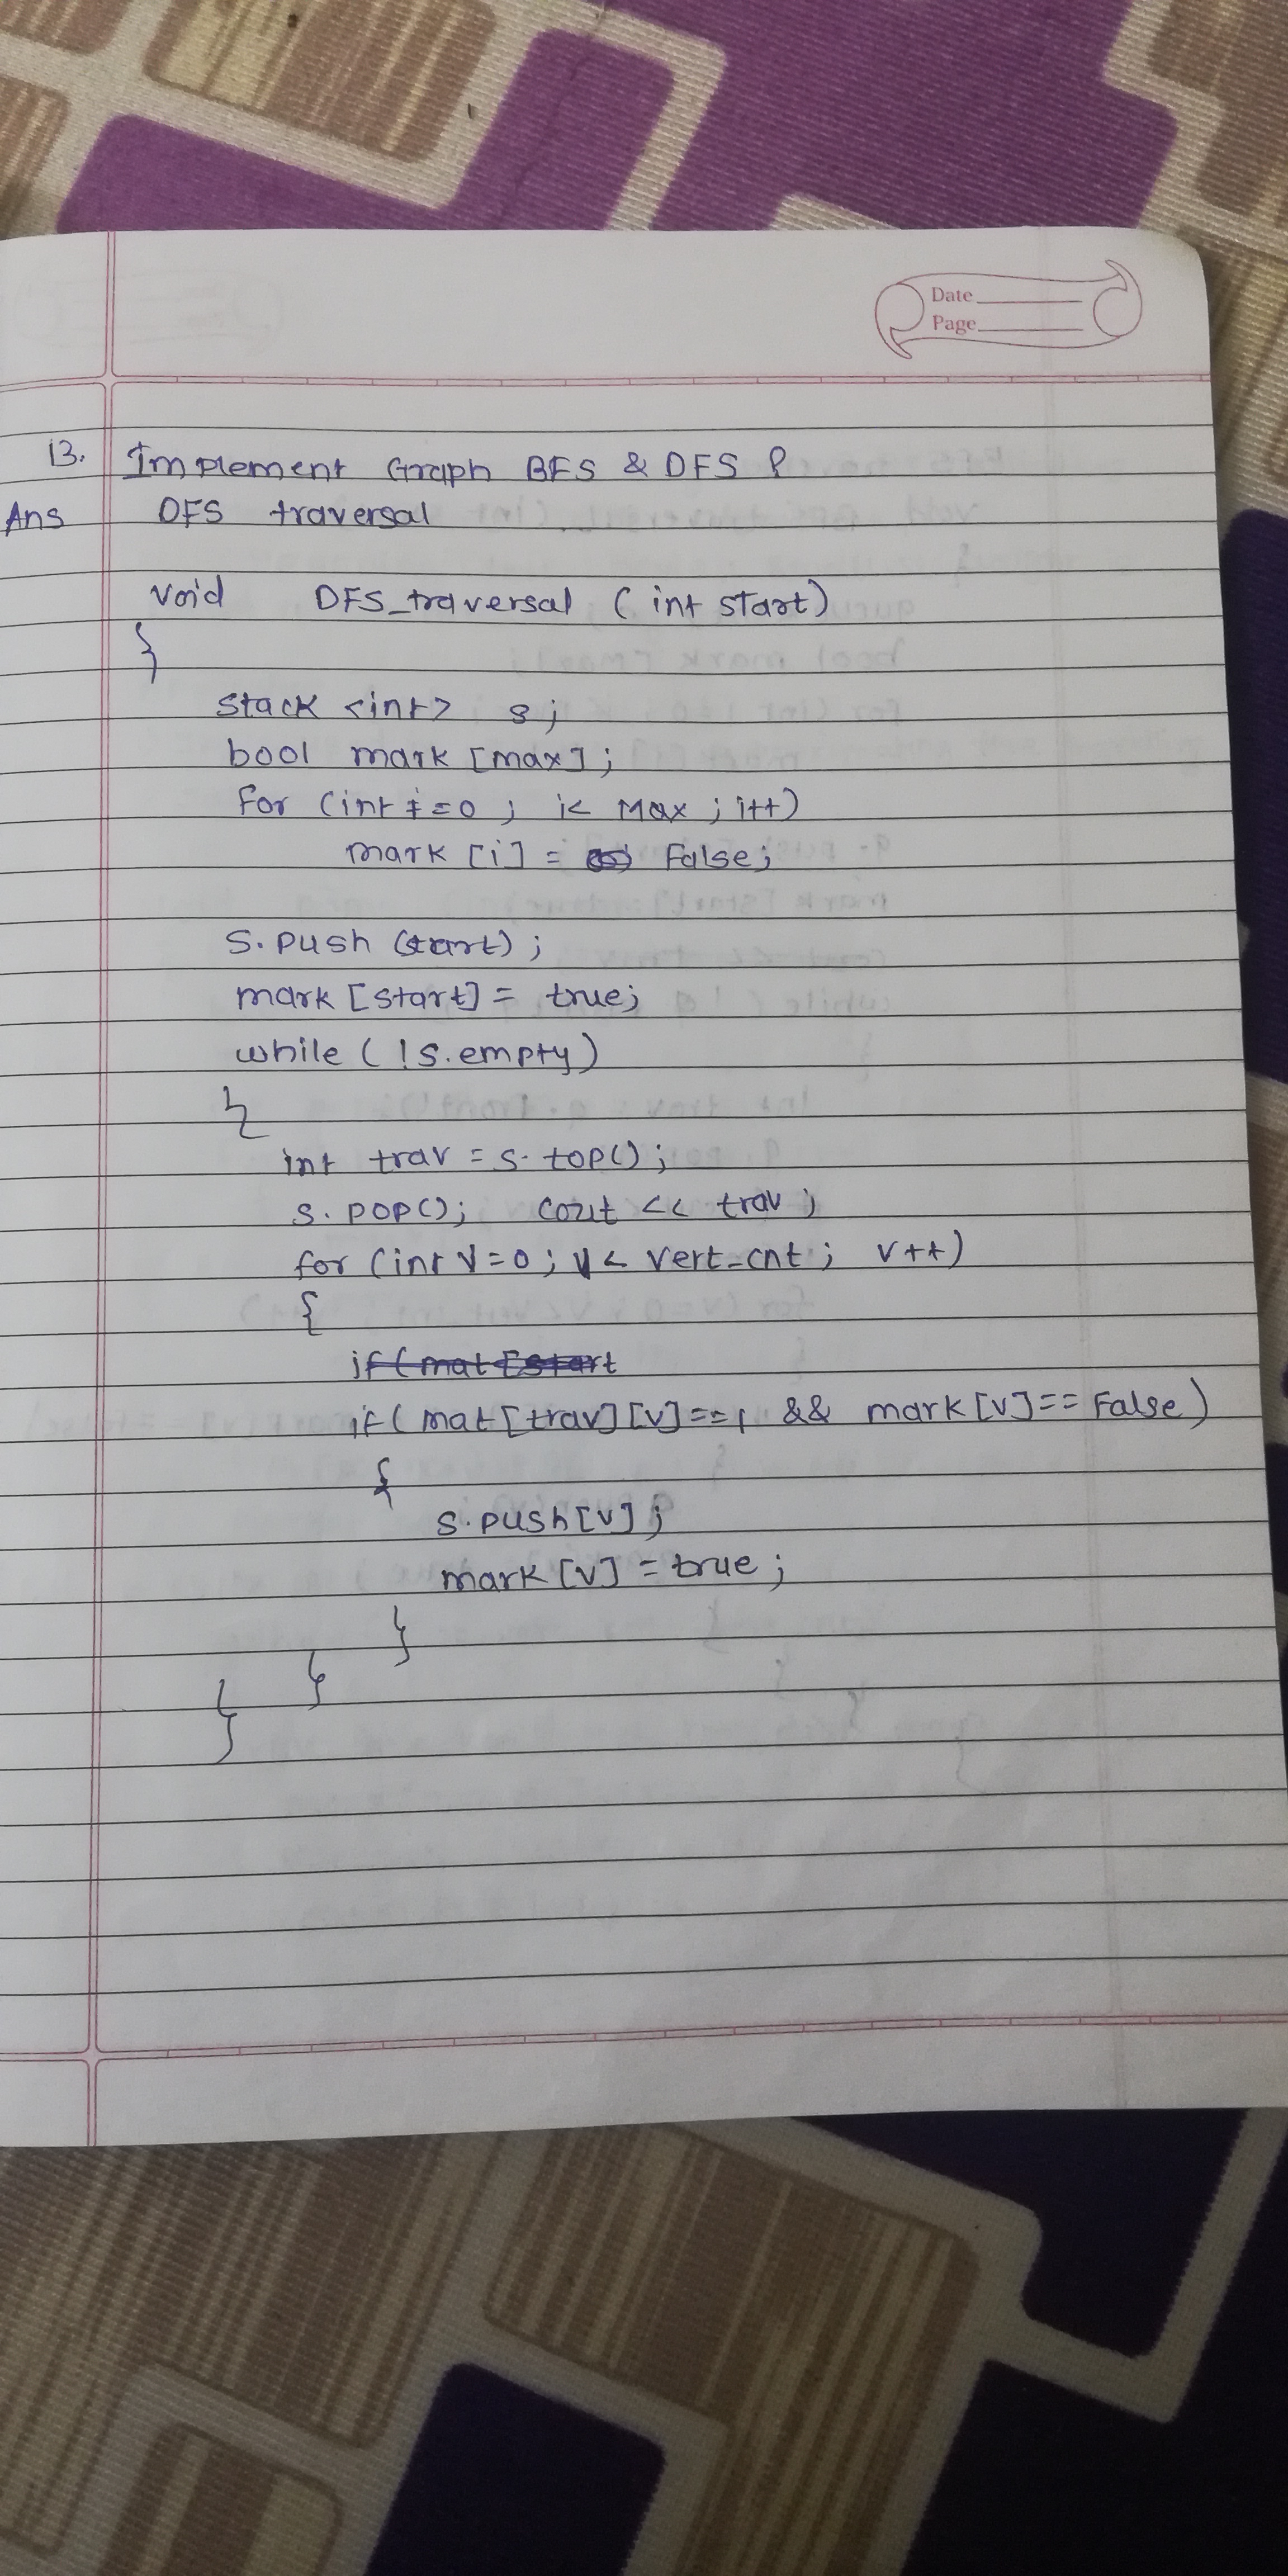 Date
Page
13. Implement Graph BFS & DFS ?
Ans DFS traversal
void DFS_traversal ( int start)
}
stack <int> s;
bool mark [max];
for (int i=0 ; i< Max ; i++)
mark [i] = False;
S. push (start) ;
mark [start] = true;
while ( !s.empty)
{
int trav = s. top();
s. pop(); cout << trav ;
for (int v=0 ; v< vert_cnt ; v++)
{
if (mat [start
if ( mat [trav] [v]==1 && mark [v]== False )
{
s.push[v] ;
mark [v] = true ;
}
}
}